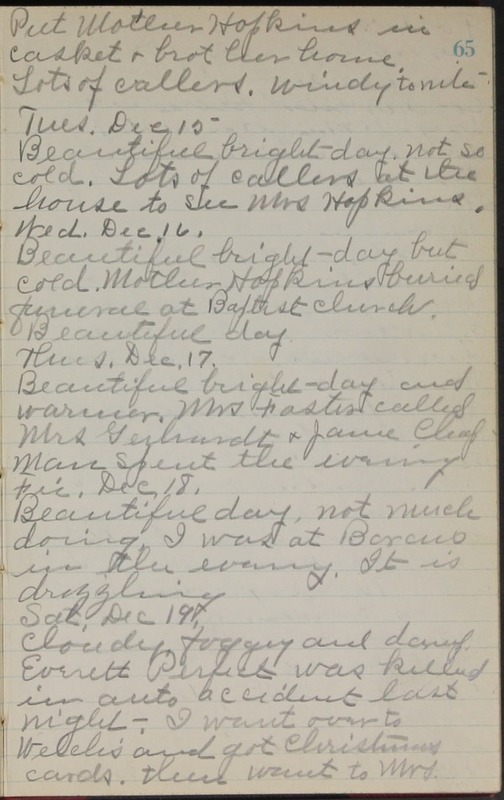 Put Mother Hopkins in
65
casket & brot her home.
Lots of callers. Windy tonite
Tues. Dec 15
Beautiful bright day. not so
cold. Lots of callers at the
house to see Mrs Hopkins.
Wed. Dec. 16.
Beautiful bright day but
cold. Mother Hopkins buried
funeral at Baptist church.
Beautiful day
Thurs. Dec. 17.
Beautiful bright day and
warmer. Mrs Foster called
Mrs Gerhardt & Jane
man spent the evening
Fri. Dec 18.
Beautiful day, not much
doing. I was at
in the eveny. It is
drizzling
Sat. Dec 19
Cloudy, foggy and damp.
Everett was killed
in auto accident last
night - I want over to
Welchs and got Christmas
cards. then want to Mrs.